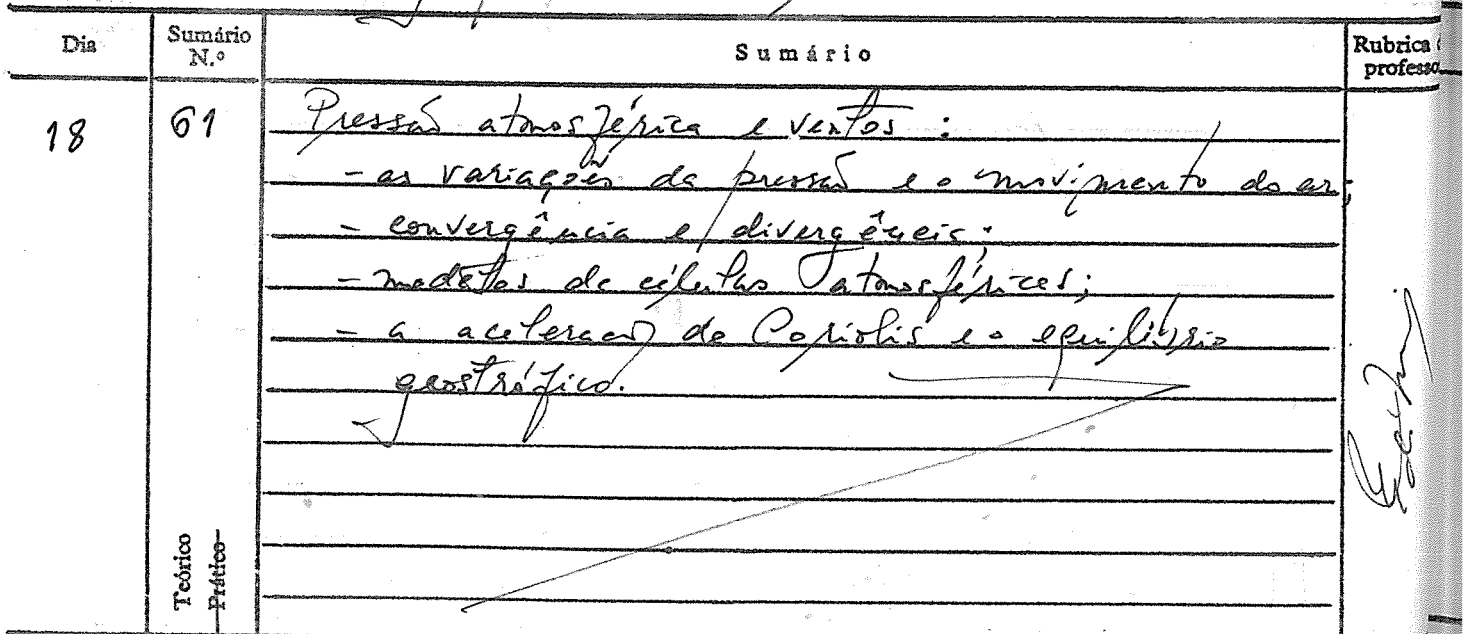 Dia Sumário N.º Sumário Rubrica professo
18 61 Pressão atmosférica e ventos:
- as variações da pressão e o movimento do ar;
- convergência e divergência;
- modelos de células atmosféricas;
- a aceleração de Coriolis e o equilíbrio
geostrófico.
Teórico
Prático